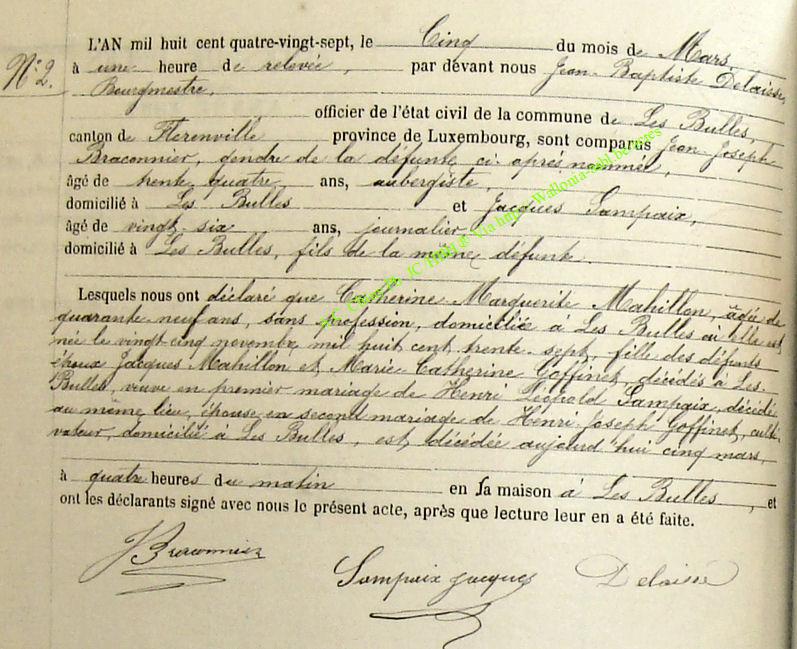 L'AN mil huit cent quatre-vingt-sept, le Cinq du mois de Mars,
N° 2.
à une heure de relevée, par devant nous Jean-Baptiste Delaisse,
Bourgmestre,
officier de l'état civil de la commune de Les Bulles,
canton de Florenville province de Luxembourg, sont comparus Jean-Joseph
Braconnier, gendre de la défunte ci-après nommée,
âgé de trente quatre ans, aubergiste,
domicilié à Les Bulles et Jacques Sampaix,
âgé de vingt-six ans, journalier
domicilié à Les Bulles, fils de la même défunte.
Lesquels nous ont déclaré que Catherine Marguerite Mahillon, âgée de
quarante neuf ans, sans profession, domiciliée à Les Bulles où elle est
née le vingt-cinq novembre mil huit cent trente-sept, fille des défunts
époux Jacques Mahillon et Marie Catherine Goffinet, décédés à Les
Bulles, veuve en premier mariage de Henri Léopold Sampaix, décédé
au même lieu, épouse en second mariage de Henri-Joseph Goffinet, culti-
vateur, domicilié à Les Bulles, est décédée aujourd'hui cinq mars,
à quatre heures du matin en sa maison à Les Bulles, et
ont les déclarants signé avec nous le présent acte, après que lecture leur en a été faite.
JBraconnier
Sampaix Jacques
Delaisse